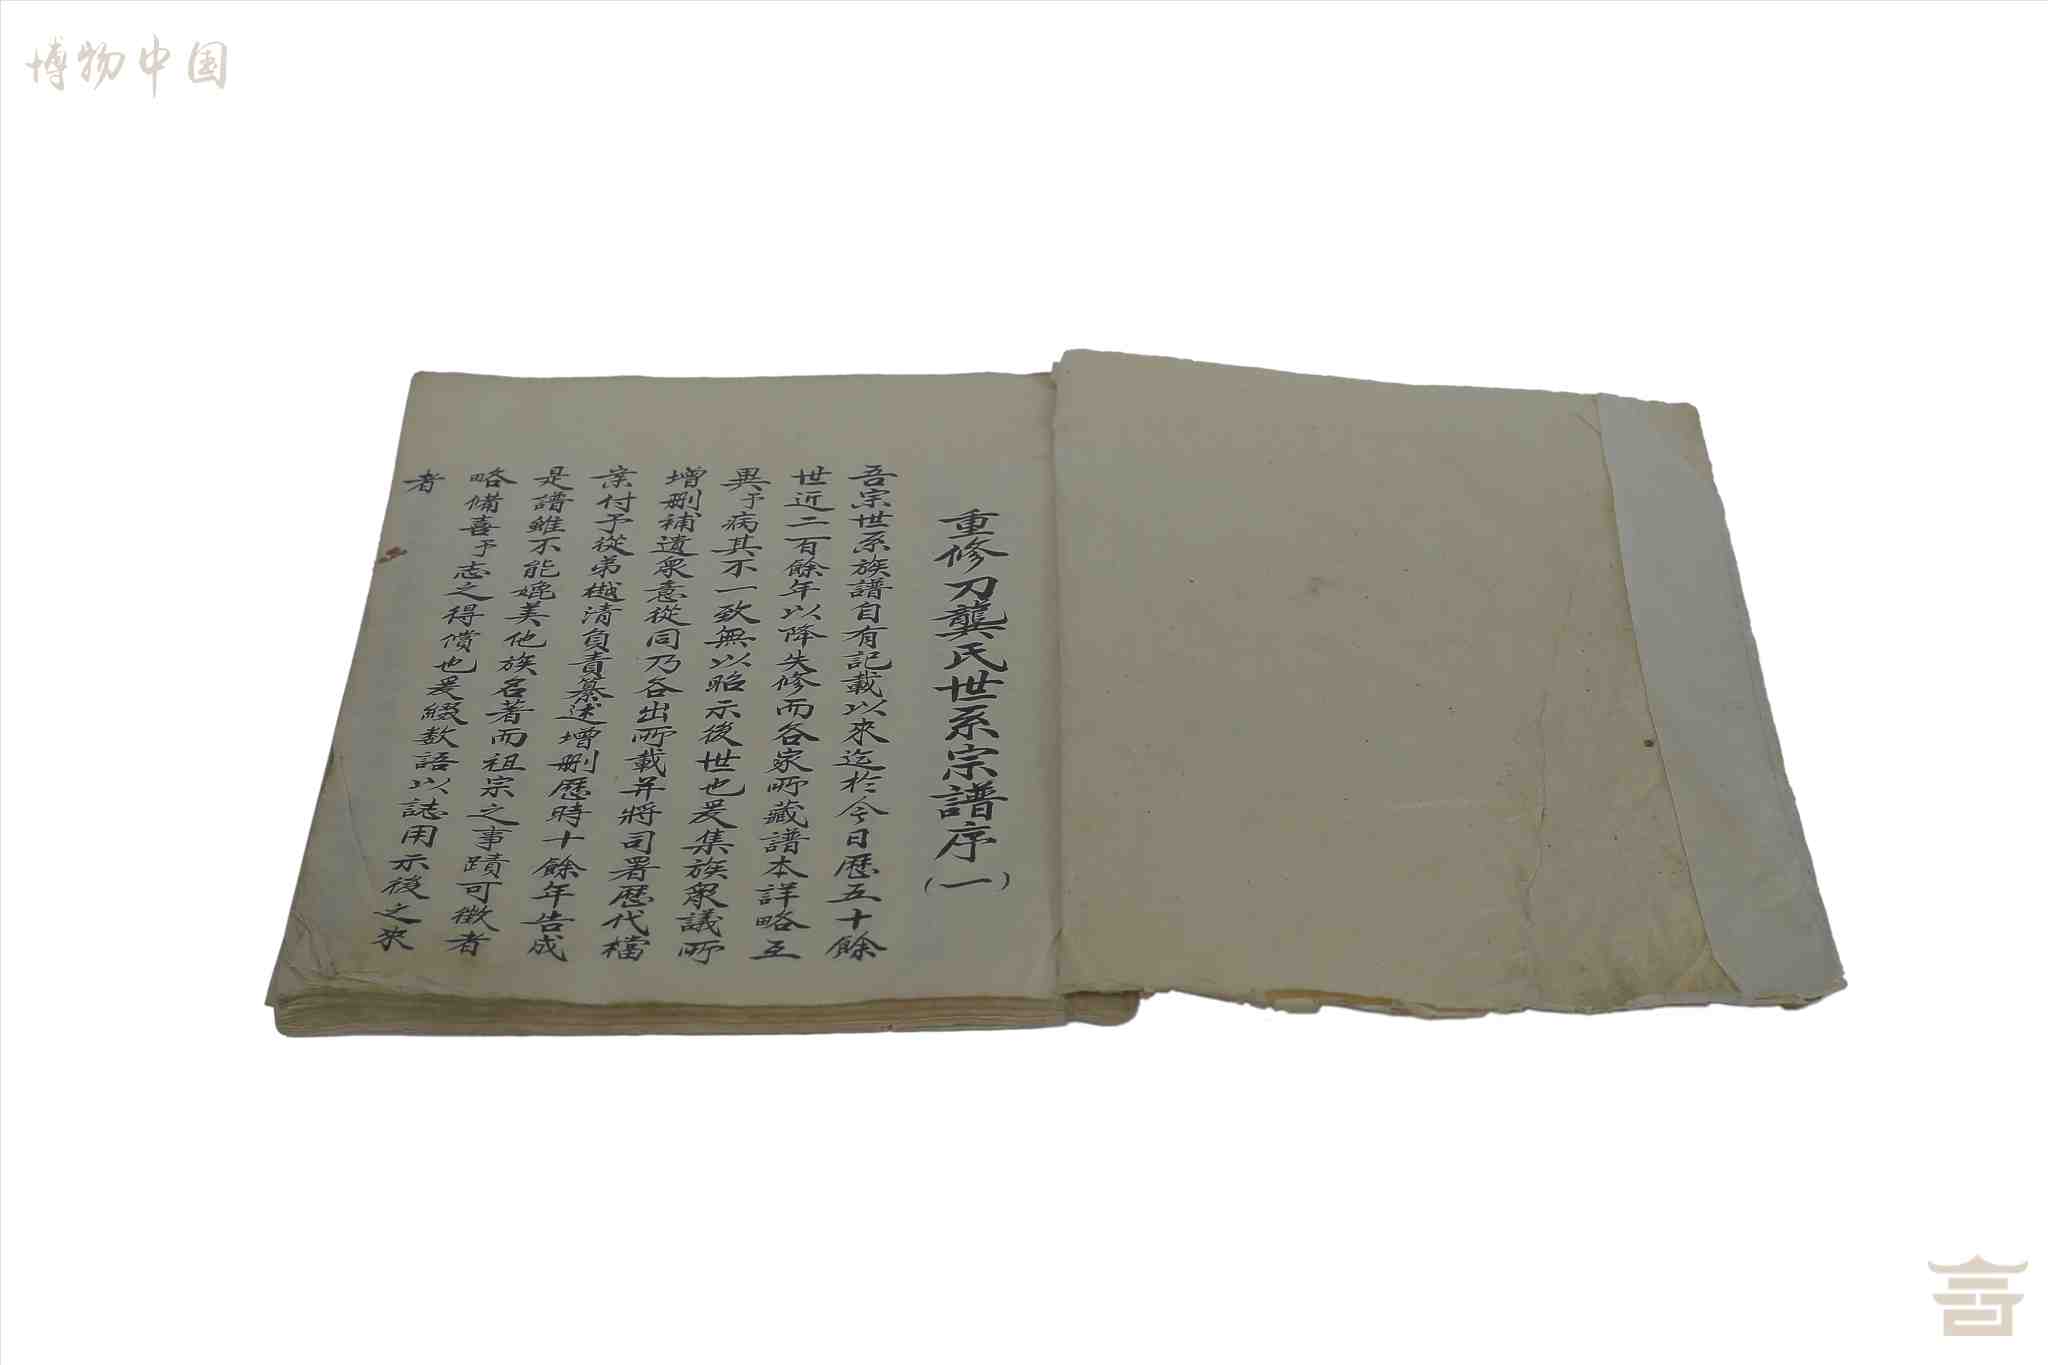 博物中国
重修刀龔氏世系宗譜序(一)
吾宗世系族譜自有記載以來迄於今日歷五十餘
世近二百餘年以降失修而各家所藏譜本詳略互
異予病其不一致無以昭示後世也爰集族衆議所
增刪補遺衆意從同乃各出所載并將司署歷代檔
案付予從弟樾清負責纂述增刪歷時十餘年告成
是譜雖不能媲美他族名著而祖宗之事蹟可徵者
略備喜予志之得償也爰綴数語以誌用示後之來
者